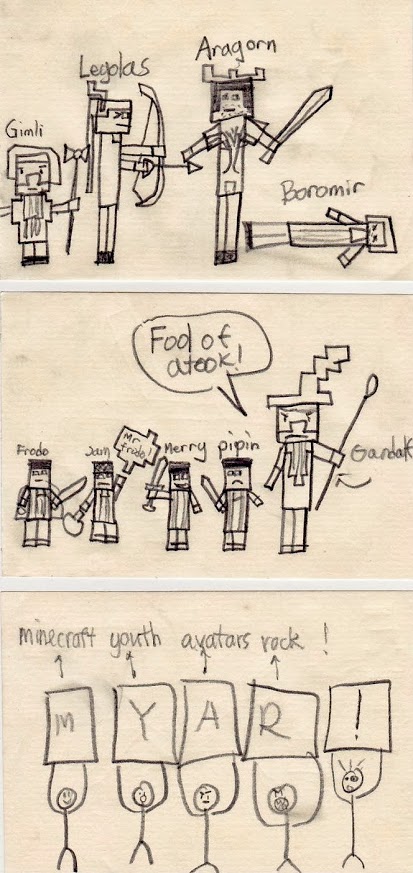 Gimli
Legolas
Aragorn
Boromir
Fool of
atook!
Frodo
Sam
Mr
Frodo!
Merry
pipin
Gandalf
minecraft youth avatars rock !
M Y A R !